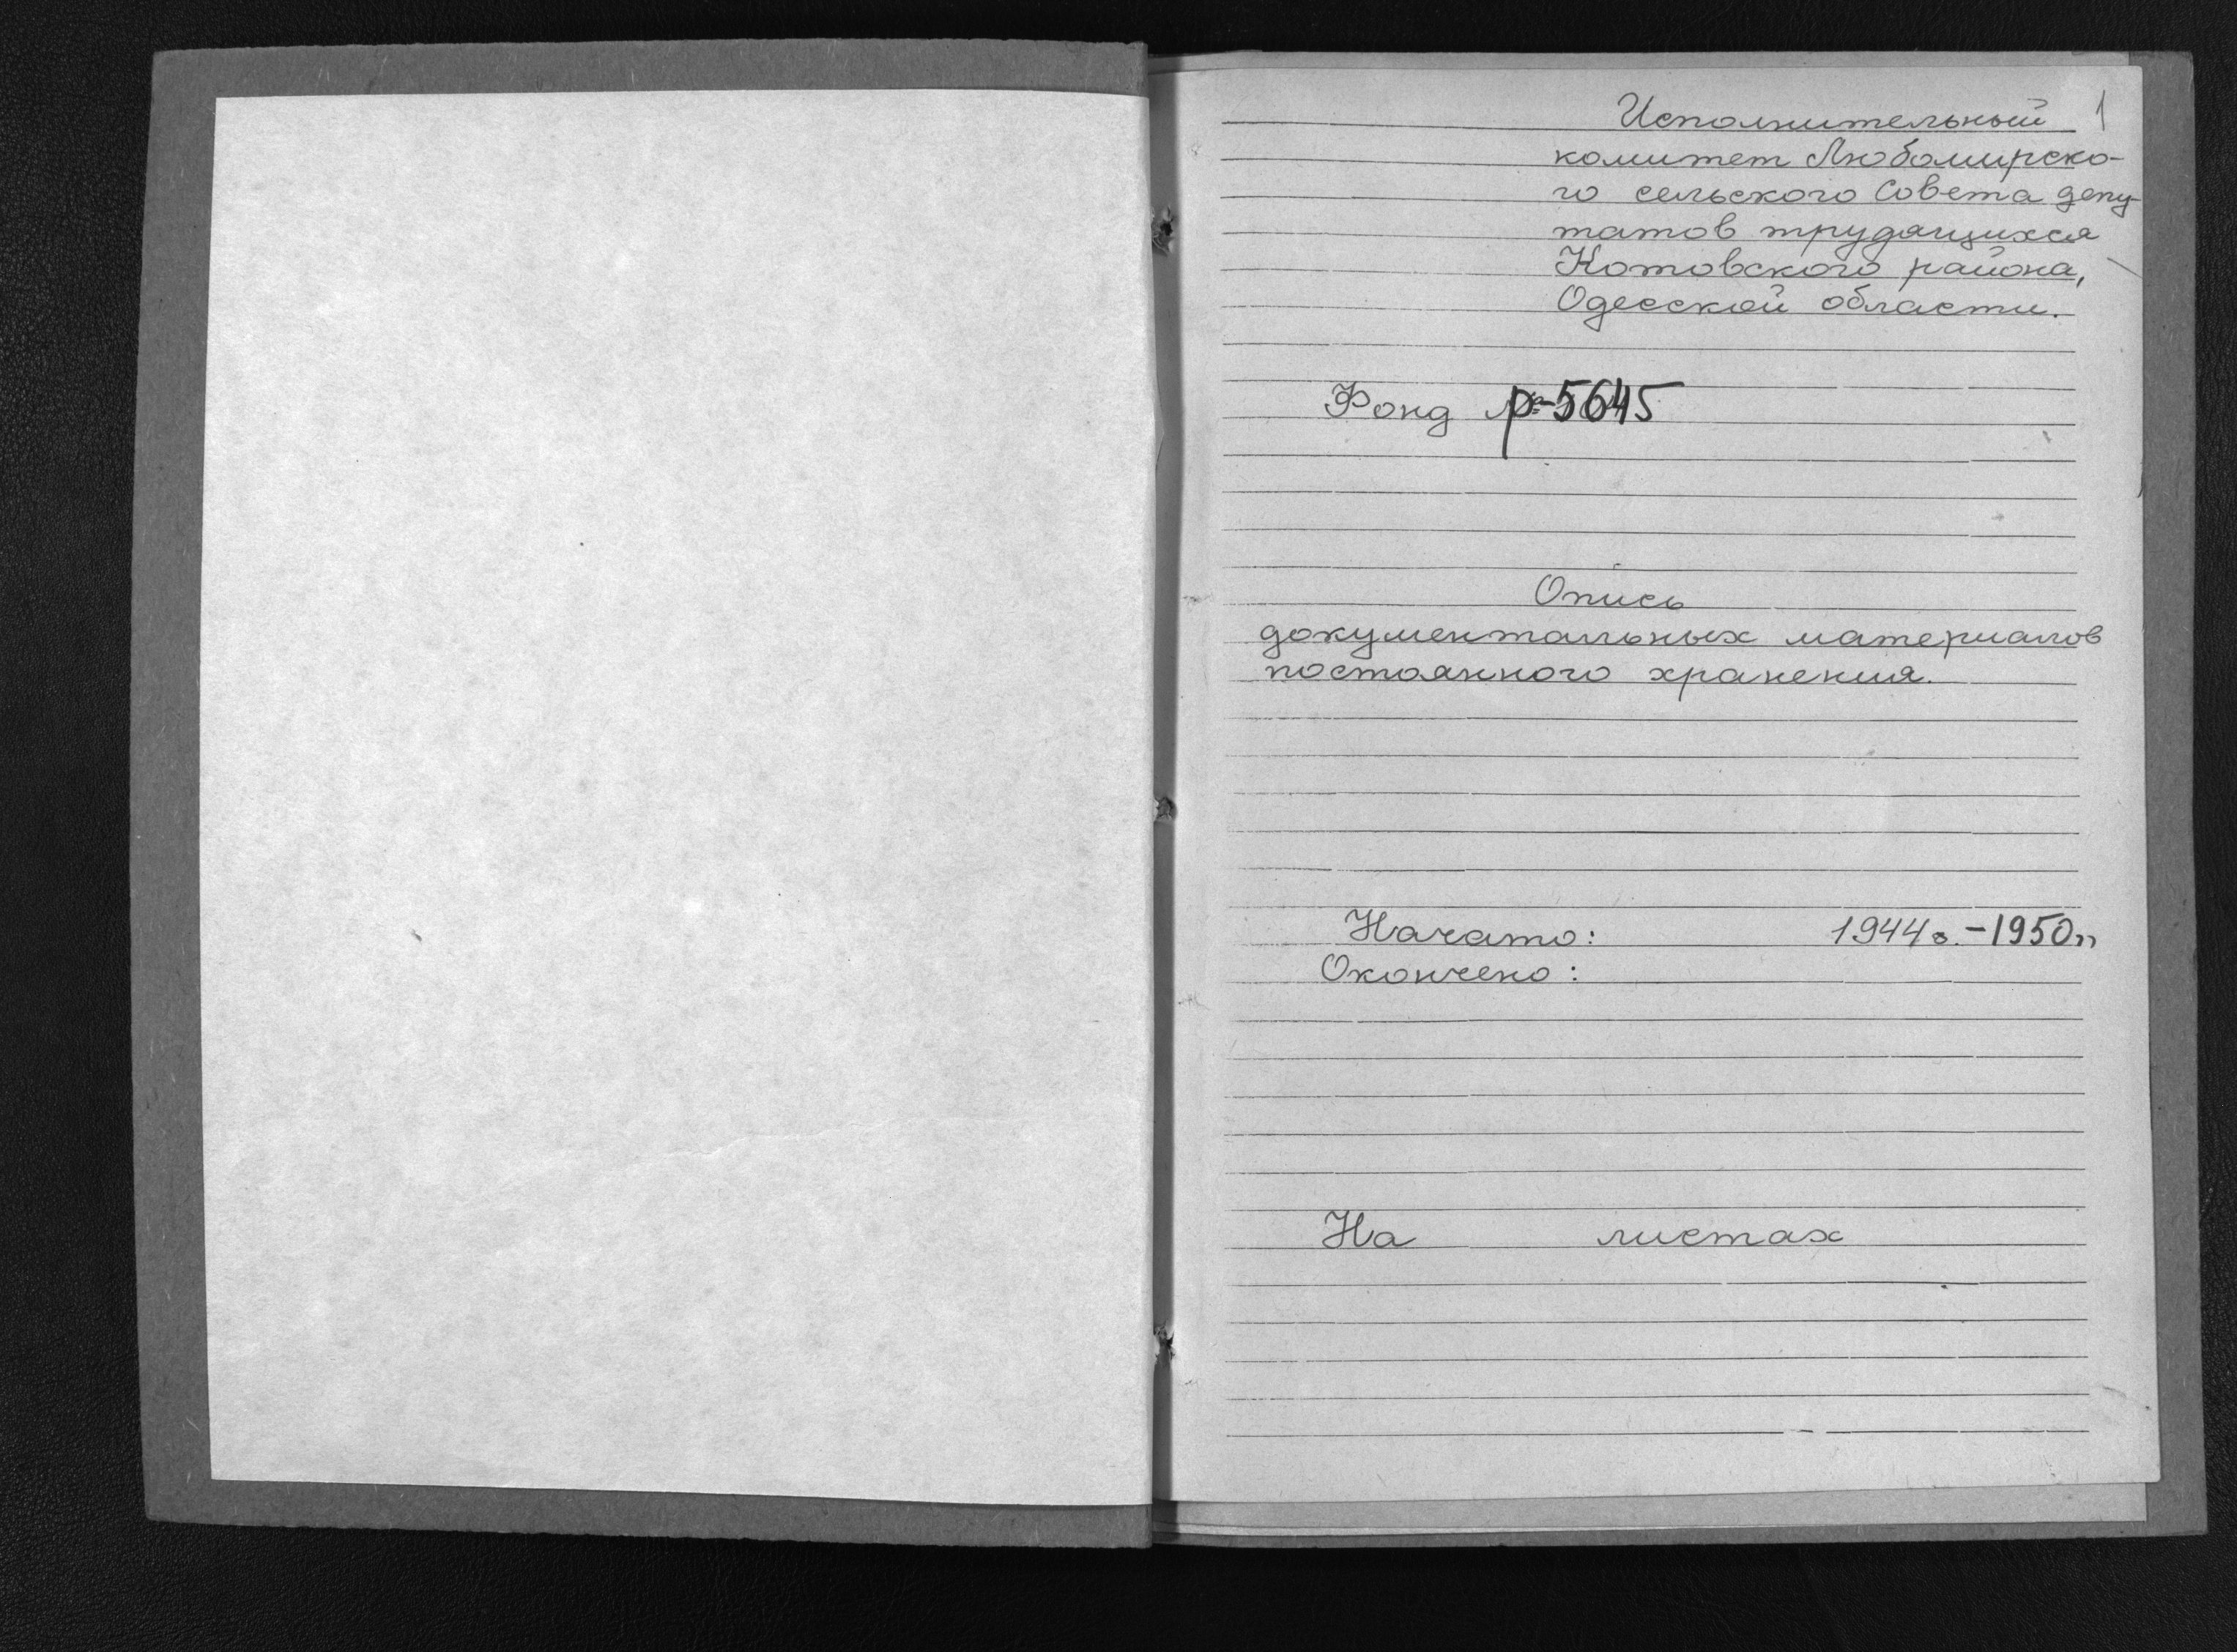 1
Исполнительный
комитет Любомирско-
го сельского Совета депу-
татов трудящихся
Котовского района,
Одесской области.
Фонд р-5645
Опись
документальных материалов
постоянного хранения.
Начато: 1944г.-1950гг
Окончено:
На листах